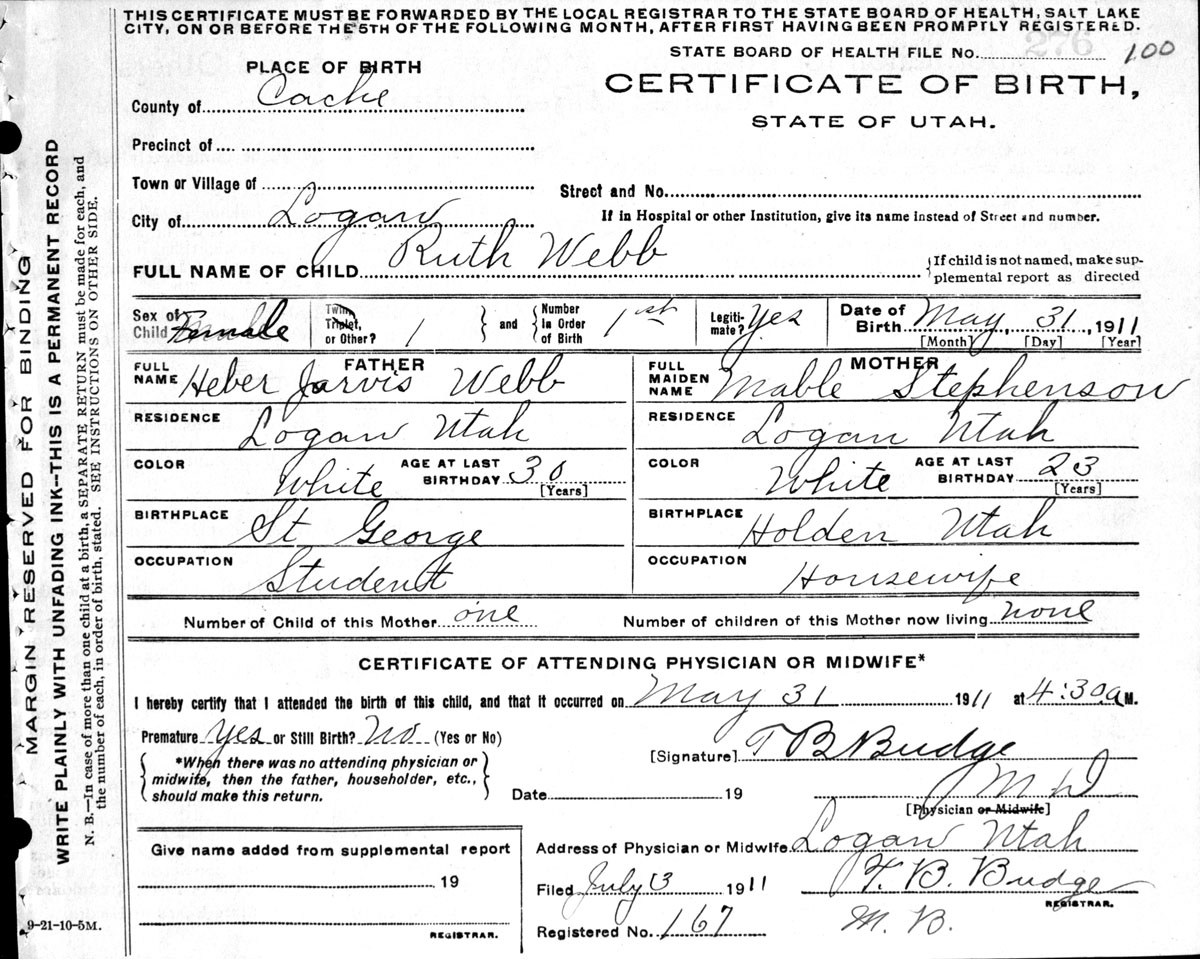 THIS CERTIFICATE MUST BE FORWARDED BY THE LOCAL REGISTRAR TO THE STATE BOARD OF HEALTH, SALT LAKE
CITY, ON OR BEFORE THE 5TH OF THE FOLLOWING MONTH, AFTER FIRST HAVING BEEN PROMPTLY REGISTERED.
276
STATE BOARD OF HEALTH FILE No. 100
PLACE OF BIRTH
CERTIFICATE OF BIRTH,
STATE OF UTAH.
County of Cache
Precinct of
Town or Village of
Street and No.
City of Logan
If in Hospital or other Institution, give its name instead of Street and number.
FULL NAME OF CHILD Ruth Webb
If child is not named, make sup-
plemental report as directed
Sex of Child Female
Twin, Triplet, or Other? 1 and Number In Order of Birth 1st
Legiti-mate? Yes
Date of Birth May, 31, 1911
[Month] [Day] [Year]
FATHER
FULL NAME Heber Jarvis Webb
MOTHER
FULL MAIDEN NAME Mable Stephenson
RESIDENCE Logan Utah
RESIDENCE Logan Utah
COLOR White AGE AT LAST BIRTHDAY 30 [Years]
COLOR White AGE AT LAST BIRTHDAY 23 [Years]
BIRTHPLACE St George
BIRTHPLACE Holden Utah
OCCUPATION Student
OCCUPATION Housewife
Number of Child of this Mother one
Number of children of this Mother now living none
CERTIFICATE OF ATTENDING PHYSICIAN OR MIDWIFE*
I hereby certify that I attended the birth of this child, and that it occurred on May 31 1911 at 4:30 a M.
Premature Yes or Still Birth? No (Yes or No)
*When there was no attending physician or
midwife, then the father, householder, etc.,
should make this return.
[Signature] T B Budge
M D
Date 19
[Physician or Midwife]
Give name added from supplemental report
19
REGISTRAR.
Address of Physician or Midwife Logan Utah
Filed July 13 1911
T. B. Budge
REGISTRAR.
Registered No. 167
M. B.
9-21-10-5M.
MARGIN RESERVED FOR BINDING
WRITE PLAINLY WITH UNFADING INK--THIS IS A PERMANENT RECORD
N. B.—In case of more than one child at a birth, a SEPARATE RETURN must be made for each, and
the number of each, in order of birth, stated. SEE INSTRUCTIONS ON OTHER SIDE.